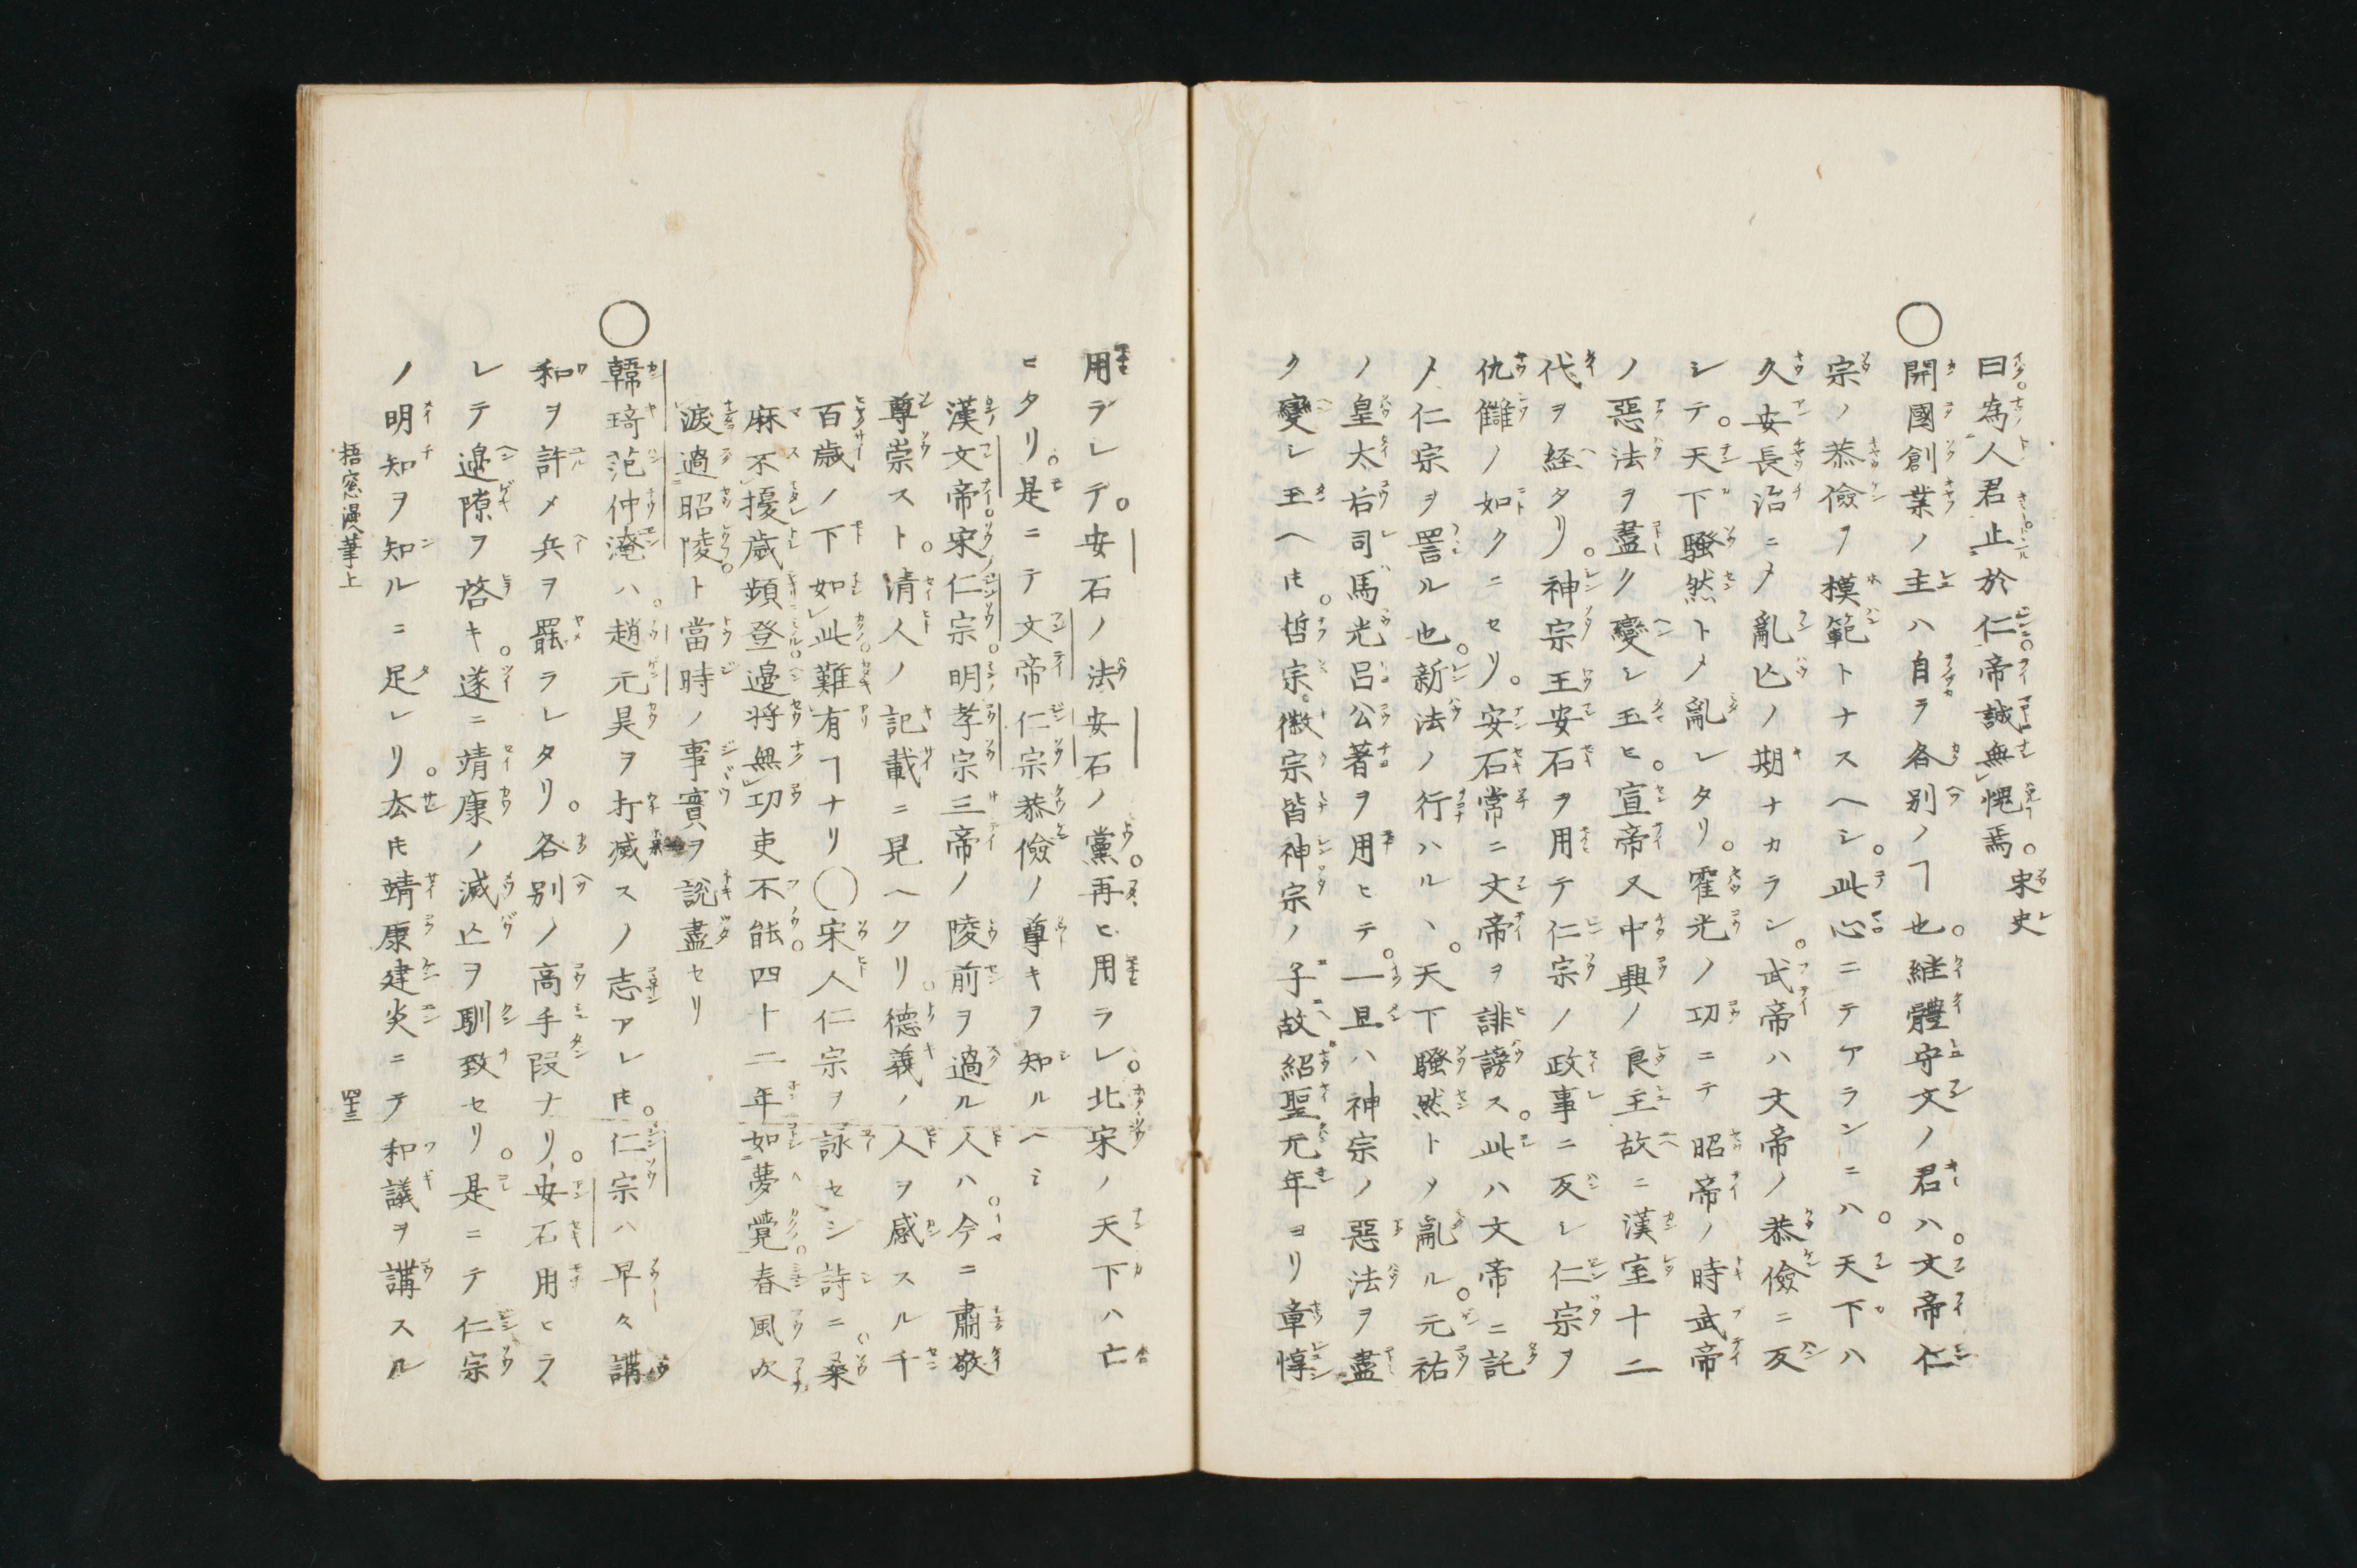 曰為人君止於仁帝誠無愧焉。宋史
○開國創業ノ主ハ自ラ各別ノヿ也。継體守文ノ君ハ。文帝仁
宗ノ恭儉ヲ模範トナスヘシ。此心ニテアランニハ。天下ハ
久安長治ニメ亂亾ノ期ナカラン。武帝ハ文帝ノ恭儉ニ反
シテ。天下騷然トメ亂レタリ。霍光ノ功ニテ昭帝ノ時武帝
ノ惡法ヲ盡ク變シ玉ヒ。宣帝又中興ノ良主故ニ漢室十二
代ヲ経タリ。神宗王安石ヲ用テ仁宗ノ政事ニ反シ仁宗ヲ
仇讎ノ如クニセリ。安石常ニ文帝ヲ誹謗ス。此ハ文帝ニ託
メ仁宗ヲ詈ル也。新法ノ行ハルヽ。天下騷然トメ亂ル。元祐
ノ皇太后司馬光呂公著ヲ用ヒテ。一旦ハ神宗ノ惡法ヲ盡
ク變シ玉ヘ𪜈。哲宗徽宗皆神宗ノ子故紹聖元年ヨリ章惇
用ラレテ。安石ノ法安石ノ黨。再ヒ用ラレ。北宋ノ天下ハ亡
ヒタリ。是ニテ文帝仁宗恭儉ノ尊キヲ知ルヘシ
漢文帝宋仁宗。明孝宗三帝ノ陵前ヲ過ル人ハ。今ニ肅敬
尊崇スト。清人ノ記載ニ見ヘタリ。德義ノ人ヲ感スル千
百歳ノ下如此難有ヿナリ○宋人仁宗ヲ詠セシ詩ニ。桑
麻不擾歳頻登邊將無功吏不能四十二年如夢覺春風吹
淚過昭陵。ト當時ノ事實ヲ說盡セリ
○韓琦范仲淹ハ。趙元昊ヲ打滅スノ志アレ𪜈。仁宗ハ早ク講
和ヲ許メ兵ヲ罷ラレタリ。各別ノ高手段ナリ。安石用ヒラ
レテ邊隙ヲ啓キ。遂ニ靖康ノ滅亾ヲ馴致セリ。是ニテ仁宗
ノ明知ヲ知ルニ足レリ。㐰𪜈靖康建炎ニテ和議ヲ講スル
梧窓漫筆上
四十三